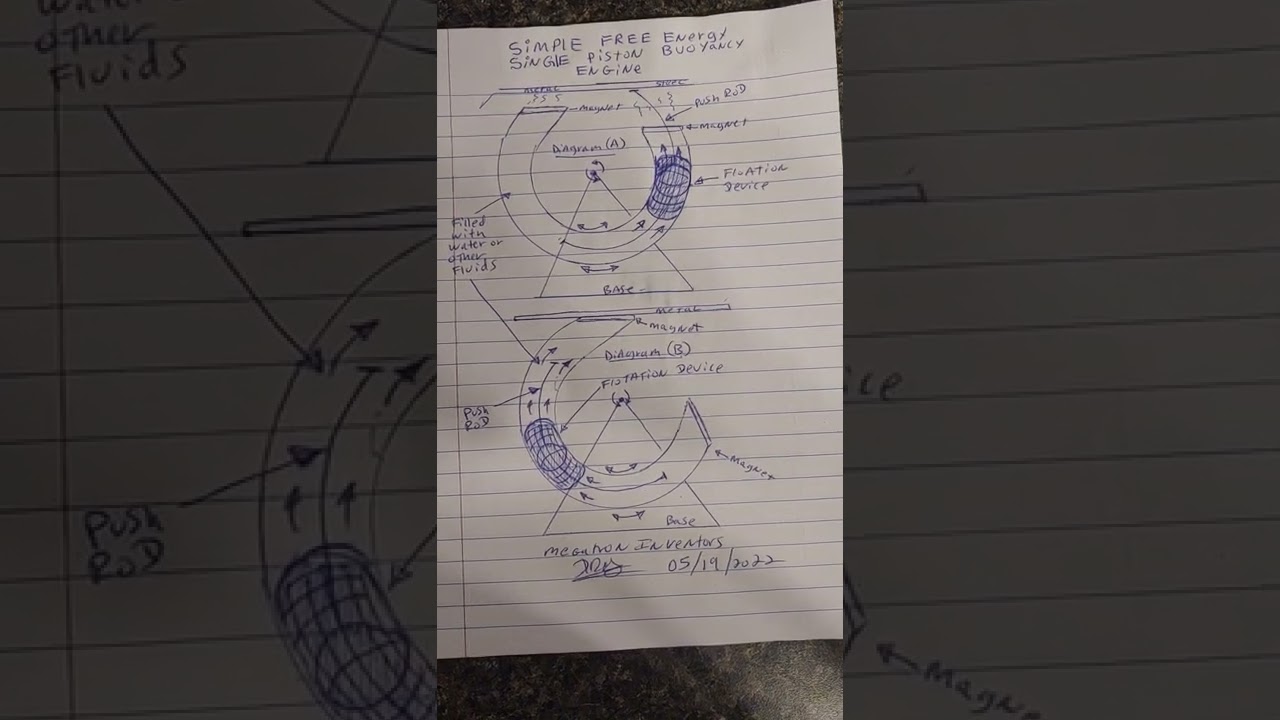 SIMPLE FREE Energy
SINGLE PISTON BUOYANCY
ENGINE
METAL
STEEL
MAGNET
PUSH ROD
MAGNET
Diagram (A)
FLOATION
Device
Filled
with
water or
other
Fluids
BASE
METAL
MAGNET
Diagram (B)
FLOTATION Device
PUSH
ROD
MAGNET
Base
MEGATRON INVENTORS
05/19/2022
water or
other
Fluids
PUSH
ROD